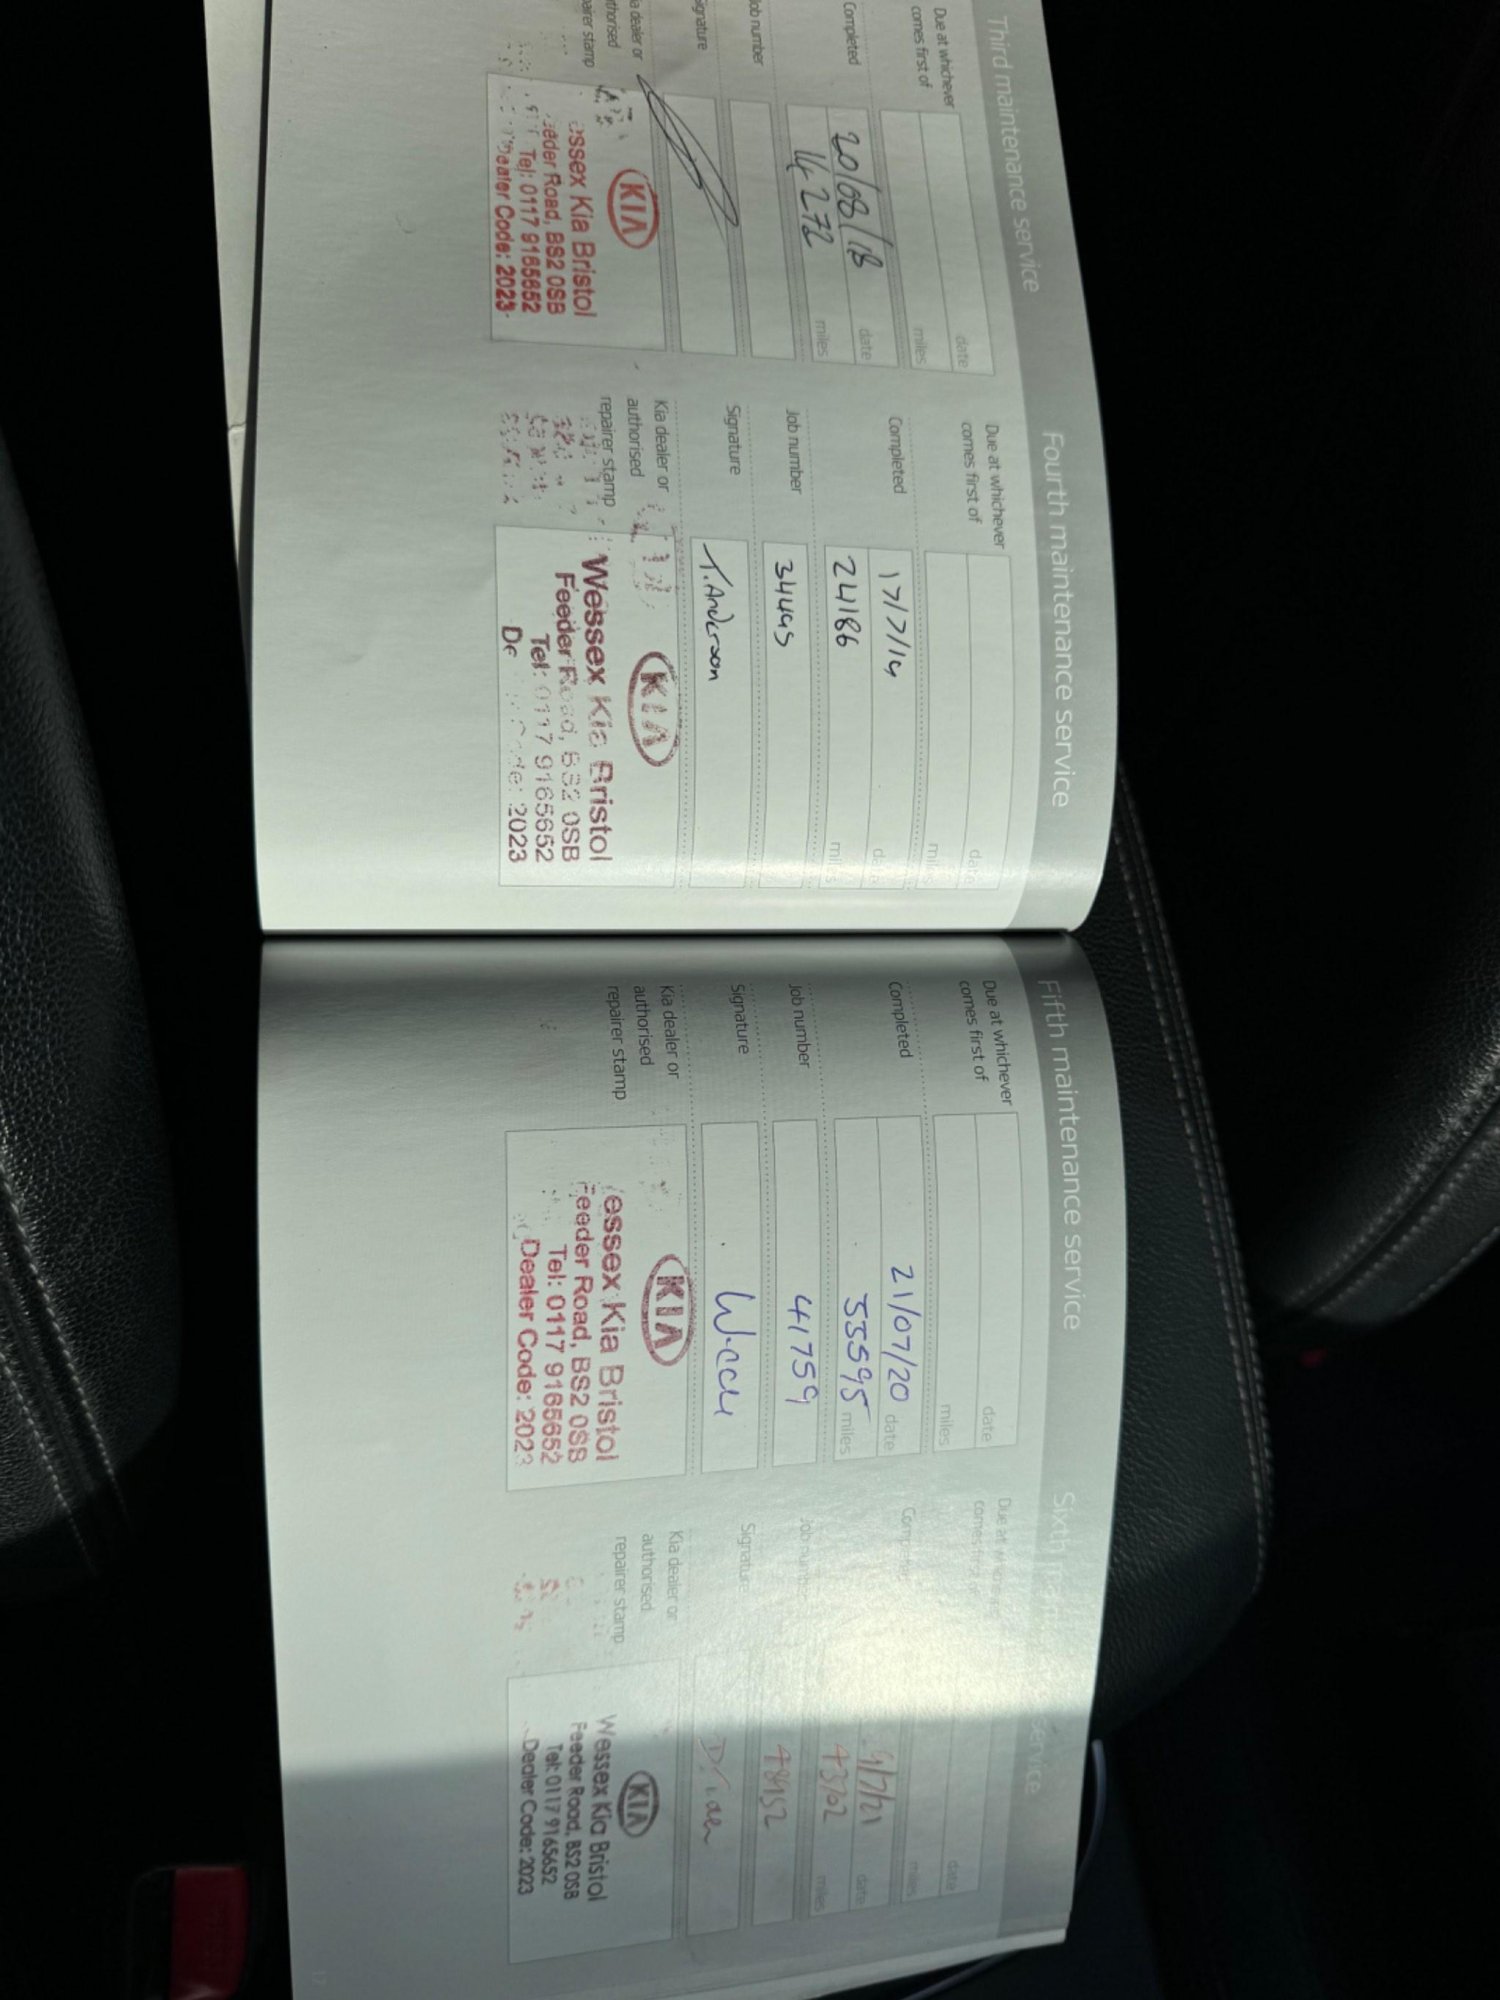 Third maintenance service
Due at whichever
comes first of
date
miles
Completed
20/08/18 date
14272 miles
Job number
Signature
Kia dealer or
authorised
repairer stamp
KIA
essex Kia Bristol
eeder Road, BS2 0SB
Tel: 0117 9165652
Dealer Code: 2023
Fourth maintenance service
Due at whichever
comes first of
date
miles
Completed
17/7/19 date
24186 miles
Job number
34495
Signature
T.Anderson
Kia dealer or
authorised
repairer stamp
KIA
Wessex Kia Bristol
Feeder Road, BS2 0SB
Tel: 0117 9165652
Code: 2023
Fifth maintenance service
Due at whichever
comes first of
date
miles
Completed
21/07/20 date
miles
Job number
41759
Signature
Kia dealer or
authorised
repairer stamp
KIA
essex Kia Bristol
eeder Road, BS2 0SB
Tel: 0117 9165652
Dealer Code: 2023
Sixth service
Due at whichever
comes first of
date
miles
Completed
date
miles
Job number
Signature
Kia dealer or
authorised
repairer stamp
KIA
Wessex Kia Bristol
Feeder Road, BS2 0SB
Tel: 0117 91 65652
Dealer Code: 2023
17